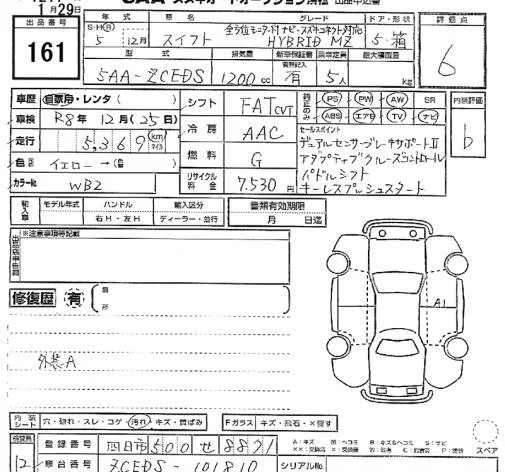 1月29日
出品番号
161
年式 車名 グレード ドア・形状 評価点
S・H・R
5年12月 スイフト 全方位モニター付ナビ・スズキコネクト対応 HYBRID MZ 5・箱
6
型式 排気量 新車保証書 乗車定員 最大積載量
5AA-ZCEDS 1200cc 有 5人 kg
車歴 自家用・レンタ( ) シフト FAT CVT
PS PW AW SR
ABS エアB TV ナビ
内装評価
b
車検 R8年12月(25日)
冷房 AAC
走行 5,369 km マイル
燃料 G
色 イエロー→( )
カラーNo WB2
リサイクル料金 7,530円
セールスポイント
デュアルセンサーブレーキサポートⅡ
アダプティブクルーズコントロール
パドルシフト
キーレスプッシュスタート
輸入車 モデル年式 ハンドル 輸入区分 書類有効期限
右H・左H ディーラー・並行 月 日迄
※注意事項等記載
修復歴 有 箇所
A1
外装A
内装シート 穴・破れ・スレ・コゲ 汚れ キズ・黄ばみ Fガラス キズ・飛石・×要す
検査員 12
登録番号 四日市500せ8871
車台番号 ZCEDS-101810 シリアルNo
スペア